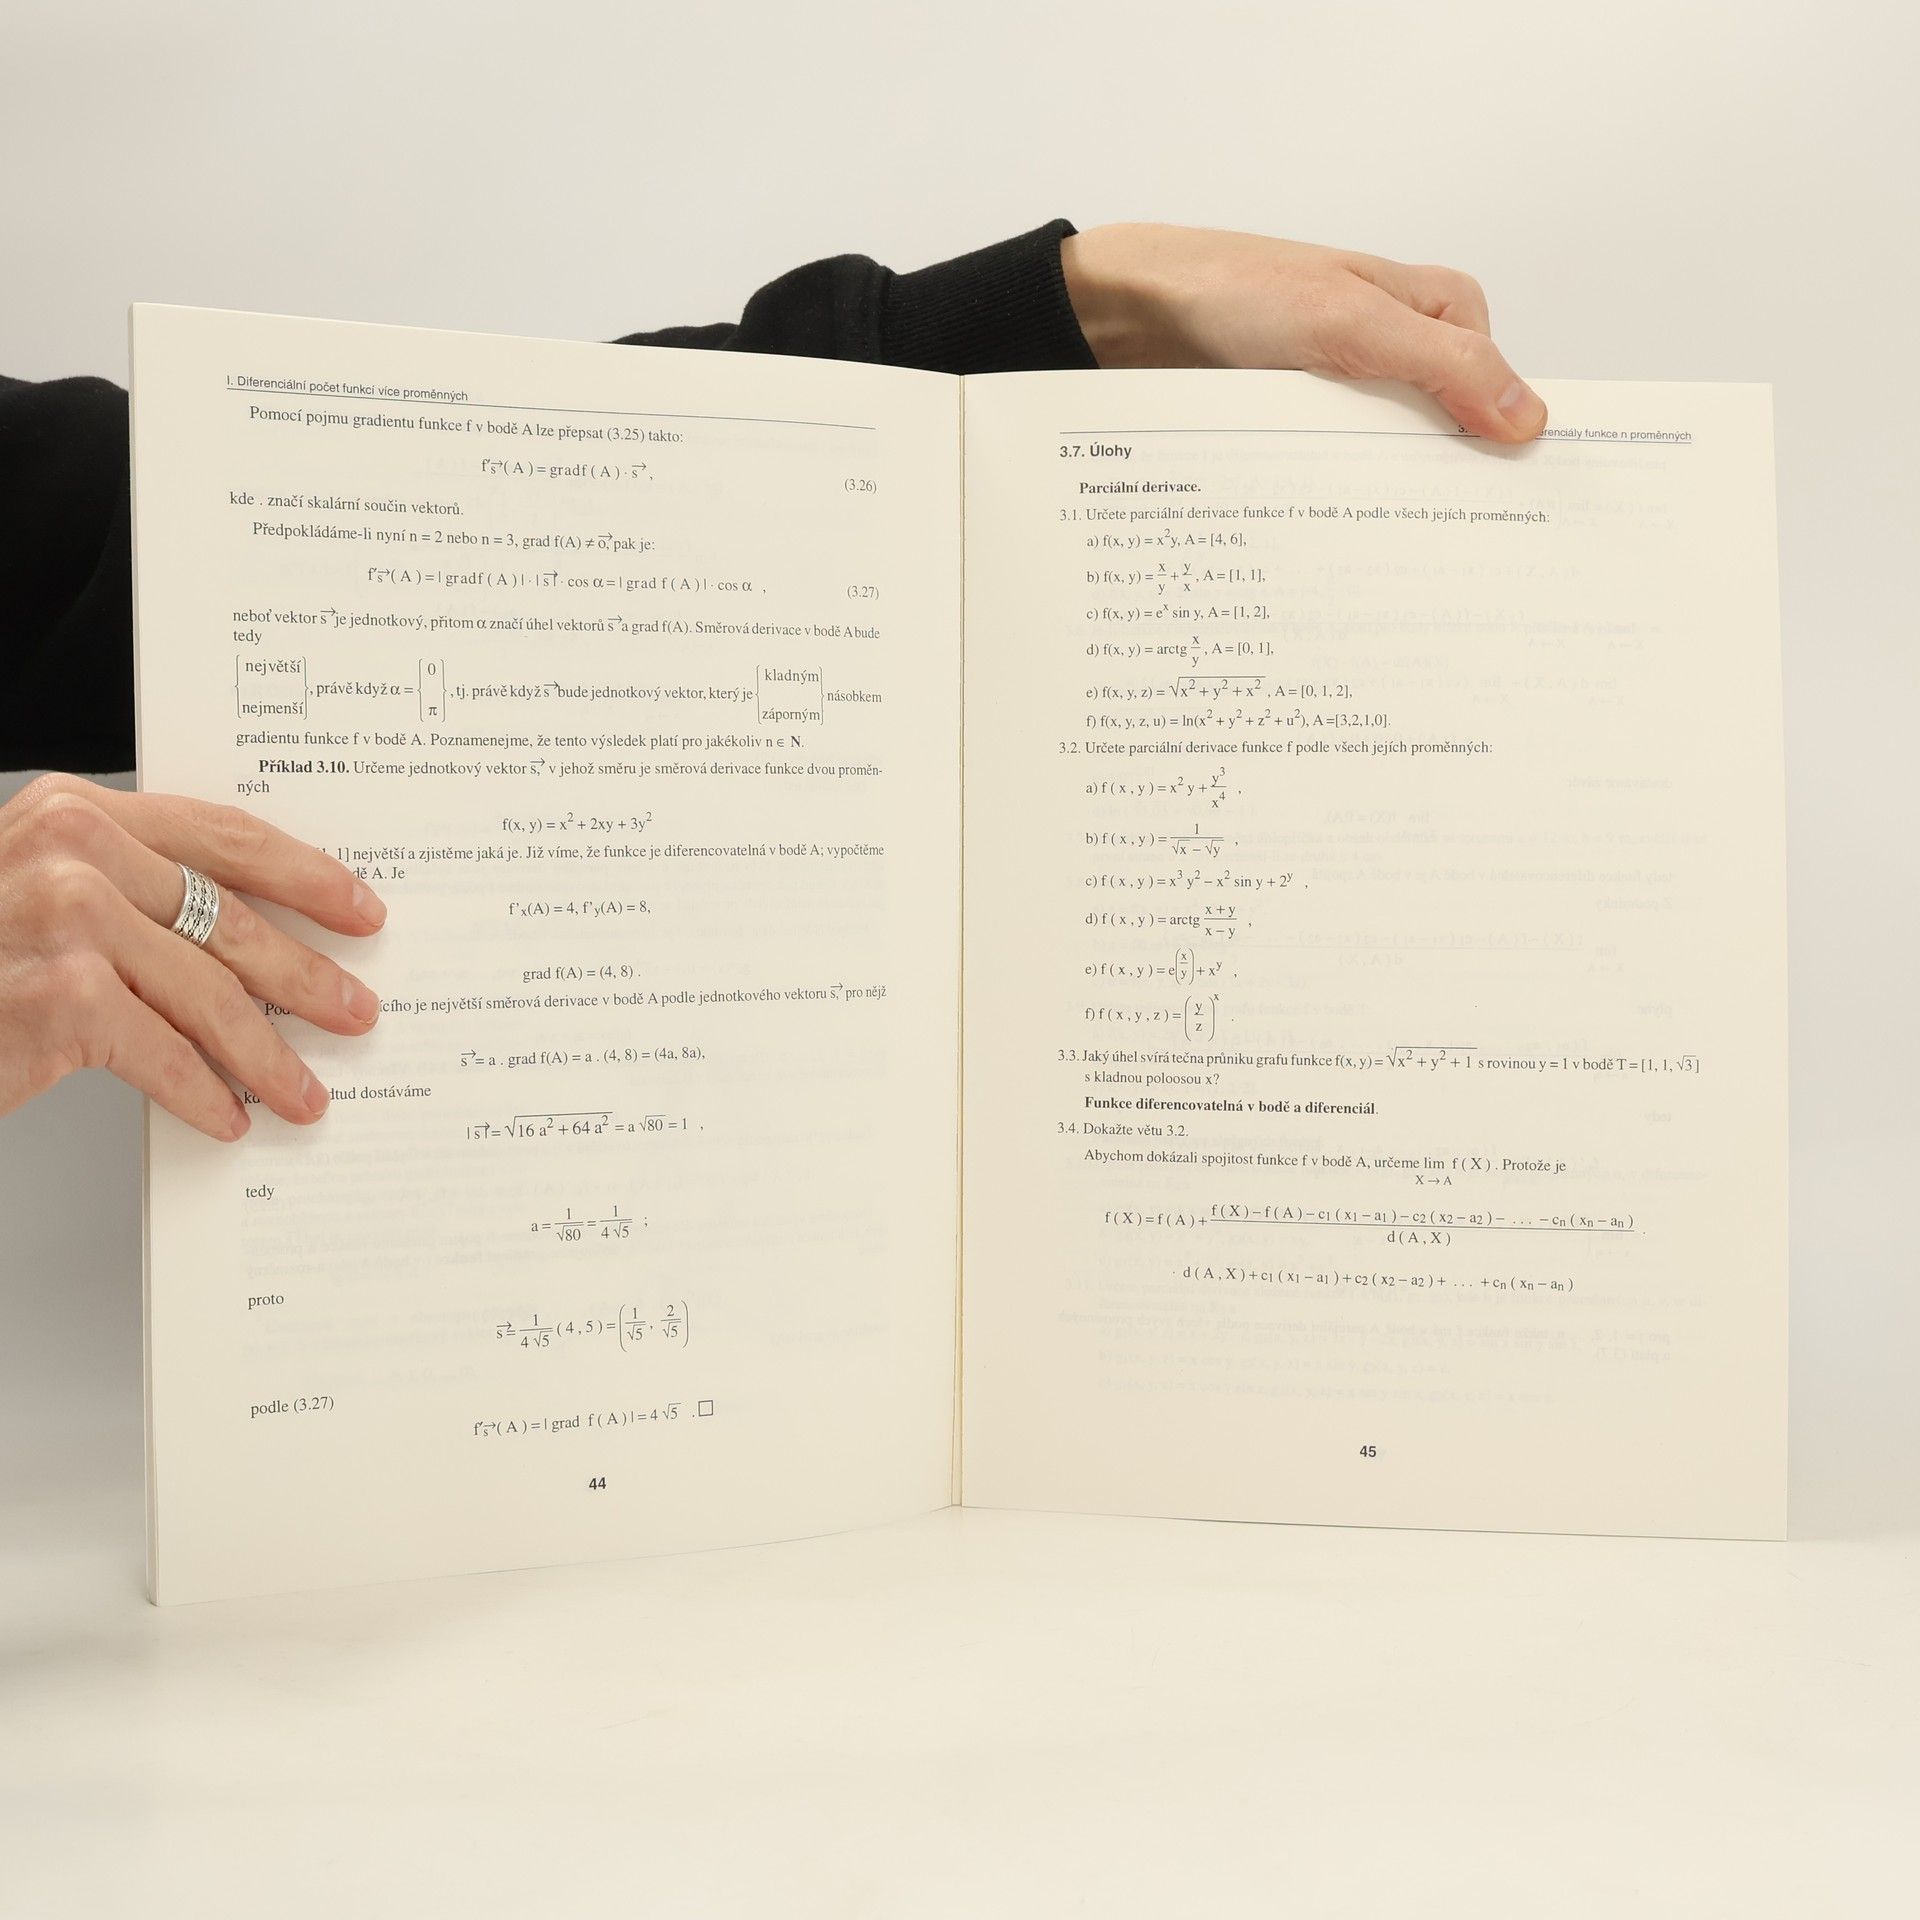 I. Diferenciální počet funkcí více proměnných
Pomocí pojmu gradientu funkce f v bodě A lze přepsat (3.25) takto:
f's⃗ ( A ) = gradf ( A ) · s⃗ , (3.26)
kde . značí skalární součin vektorů.
Předpokládáme-li nyní n = 2 nebo n = 3, grad f(A) ≠ o⃗, pak je:
f's⃗ ( A ) = | gradf ( A ) | · | s⃗ | · cos α = | grad f ( A ) | · cos α , (3.27)
neboť vektor s⃗ je jednotkový, přitom α značí úhel vektorů s⃗ a grad f(A). Směrová derivace v bodě A bude
tedy
{největší / nejmenší}, právě když α = {0 / π}, tj. právě když s⃗ bude jednotkový vektor, který je {kladným / záporným} násobkem
gradientu funkce f v bodě A. Poznamenejme, že tento výsledek platí pro jakékoliv n ∈ N.
Příklad 3.10. Určeme jednotkový vektor s⃗, v jehož směru je směrová derivace funkce dvou proměn-
ných
f(x, y) = x² + 2xy + 3y²
1] největší a zjistěme jaká je. Již víme, že funkce je diferencovatelná v bodě A; vypočtěme
A. Je
f'x(A) = 4, f'y(A) = 8,
grad f(A) = (4, 8) .
je největší směrová derivace v bodě A podle jednotkového vektoru s⃗, pro nějž
s⃗ = a . grad f(A) = a . (4, 8) = (4a, 8a),
dostáváme
| s⃗ | = √(16 a² + 64 a²) = a √80 = 1 ,
tedy
a = 1/√80 = 1/(4 √5) ;
proto
s⃗ = 1/(4 √5) ( 4 , 5 ) = ( 1/√5 , 2/√5 )
podle (3.27)
f's⃗ ( A ) = | grad f ( A ) | = 4 √5 . □
44
funkce n proměnných
3.7. Úlohy
Parciální derivace.
3.1. Určete parciální derivace funkce f v bodě A podle všech jejích proměnných:
a) f(x, y) = x²y, A = [4, 6],
b) f(x, y) = x/y + y/x , A = [1, 1],
c) f(x, y) = eˣ sin y, A = [1, 2],
d) f(x, y) = arctg x/y , A = [0, 1],
e) f(x, y, z) = √(x² + y² + x²) , A = [0, 1, 2],
f) f(x, y, z, u) = ln(x² + y² + z² + u²), A =[3,2,1,0].
3.2. Určete parciální derivace funkce f podle všech jejích proměnných:
a) f ( x , y ) = x² y + y³/x⁴ ,
b) f ( x , y ) = 1/(√x − √y) ,
c) f ( x , y ) = x³ y² − x² sin y + 2ʸ ,
d) f ( x , y ) = arctg (x + y)/(x − y) ,
e) f ( x , y ) = e^(x/y) + xʸ ,
f) f ( x , y , z ) = (y/z)ˣ .
3.3. Jaký úhel svírá tečna průniku grafu funkce f(x, y) = √(x² + y² + 1) s rovinou y = 1 v bodě T = [1, 1, √3]
s kladnou poloosou x?
Funkce diferencovatelná v bodě a diferenciál.
3.4. Dokažte větu 3.2.
Abychom dokázali spojitost funkce f v bodě A, určeme lim f ( X ) . Protože je
X → A
f ( X ) = f ( A ) + (f ( X ) − f ( A ) − c₁ ( x₁ − a₁ ) − c₂ ( x₂ − a₂ ) − . . . − cₙ ( xₙ − aₙ ))/(d ( A , X )) ·
· d ( A , X ) + c₁ ( x₁ − a₁ ) + c₂ ( x₂ − a₂ ) + . . . + cₙ ( xₙ − aₙ )
45